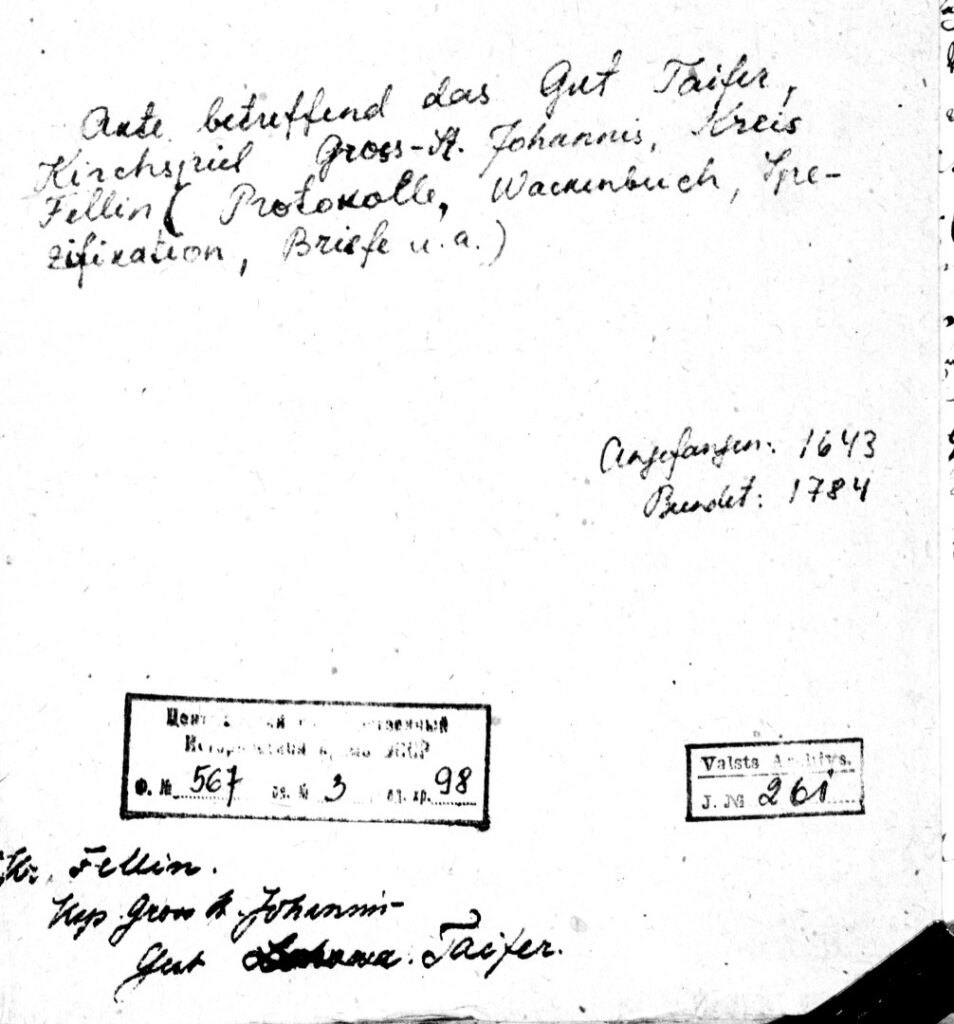 Akte betreffend das Gut Taifer,
Kirchspiel Gross-St. Johannis, Kreis
Fellin (Protokolle, Wackenbuch, Spe-
zifikation, Briefe u.a.)
Angefangen: 1643
Beendet: 1784
Центральный государственный
Исторический архив ЭССР
Ф. № 567 св. № 3 ед. хр. 98
Valsts Archivs.
J. № 261
Kr. Fellin.
Ksp. Gross St. Johannis
Gut Taifer.